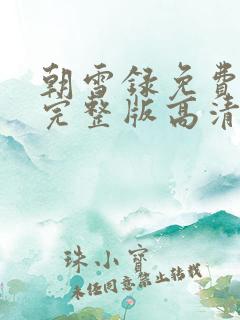 朝雪録免費
完整版高清
珠小寶
未経同意禁止转载